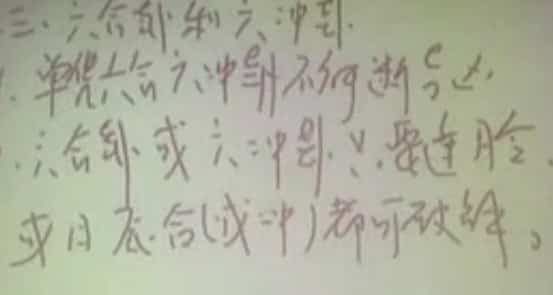 三、六合卦和六冲卦
单凭六合六冲卦不能断吉凶
六合卦或六冲卦、只要逢月令
或日辰合(或冲)都可破解。